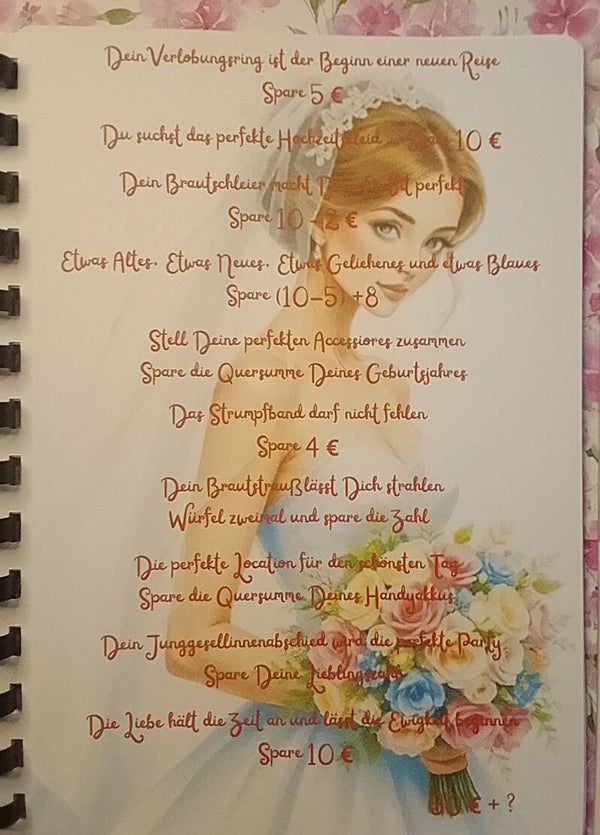 Dein Verlobungsring ist der Beginn einer neuen Reise
Spare 5 €
Du suchst das perfekte Hochzeitskleid 10 €
Dein Brautschleier macht perfekt
Spare 10 - 2 €
Etwas Altes. Etwas Neues. Etwas Geliehenes und etwas Blaues
Spare (10-5) +8
Stell Deine perfekten Accessiores zusammen
Spare die Quersumme Deines Geburtsjahres
Das Strumpfband darf nicht fehlen
Spare 4 €
Dein Brautstraußlässt Dich strahlen
Würfel zweimal und spare die Zahl
Die perfekte Location für den schönsten Tag
Spare die Quersumme Deines Handyakkus
Dein Junggesellinnenabschied wird die perfekte Party
Spare Deine Lieblingszahl
Die Liebe hält die Zeit an und lässt die Ewigkeit beginnen
Spare 10 €
€ + ?